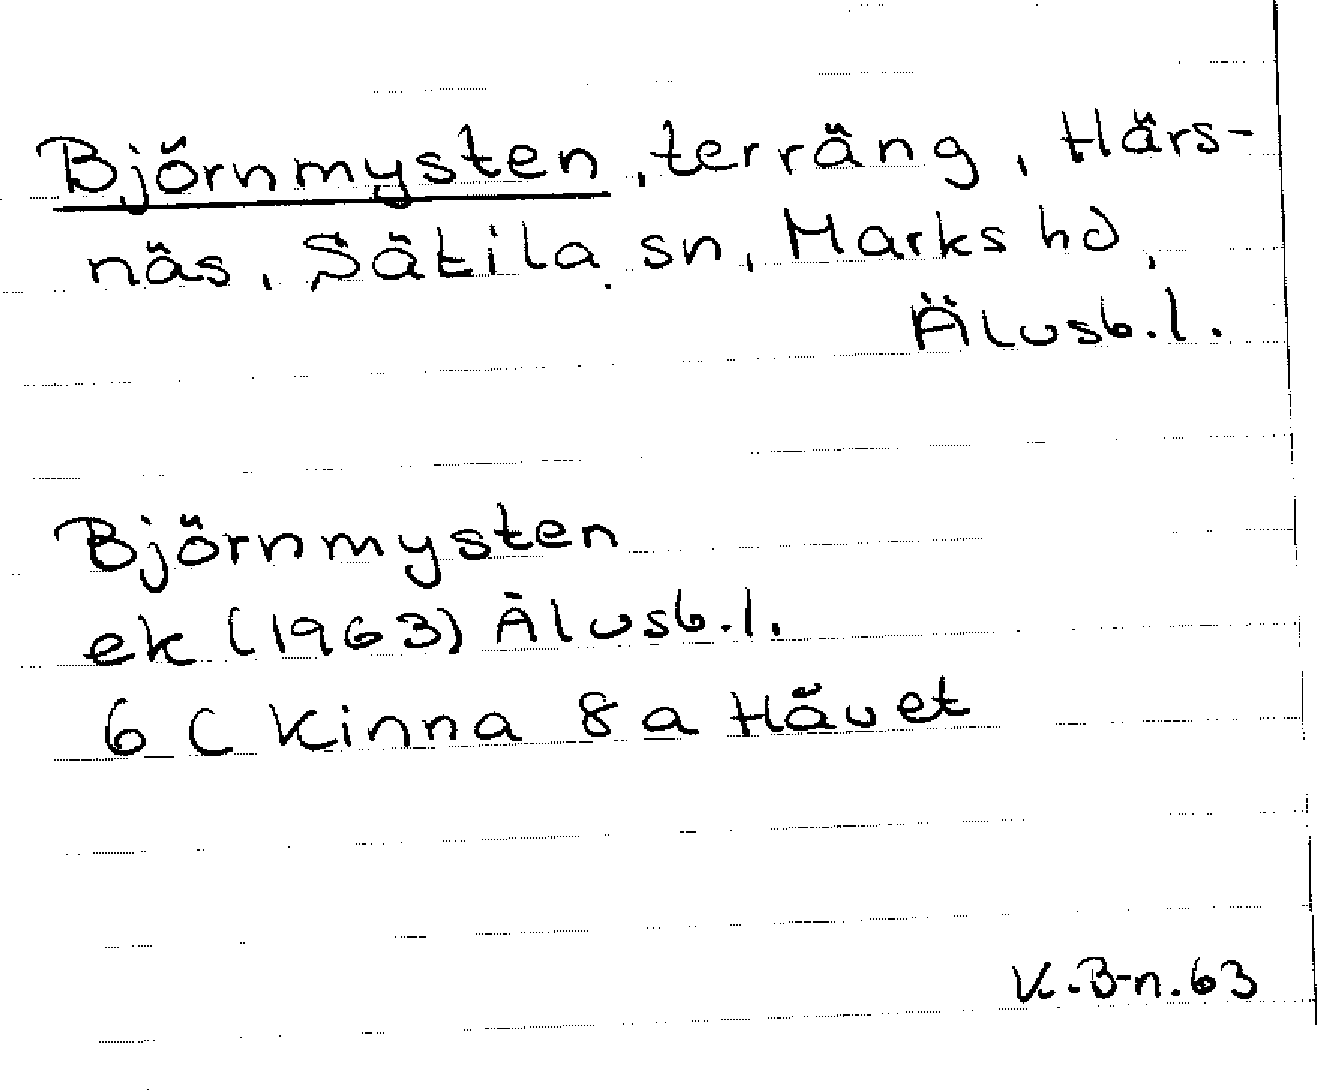 Björnmysten, terräng, Härs-
näs, Sätila sn, Marks hd,
Älvsb.l.
Björnmysten
ek (1963) Älvsb.l.
6 C Kinna 8 a Hävet
K.B-n.63